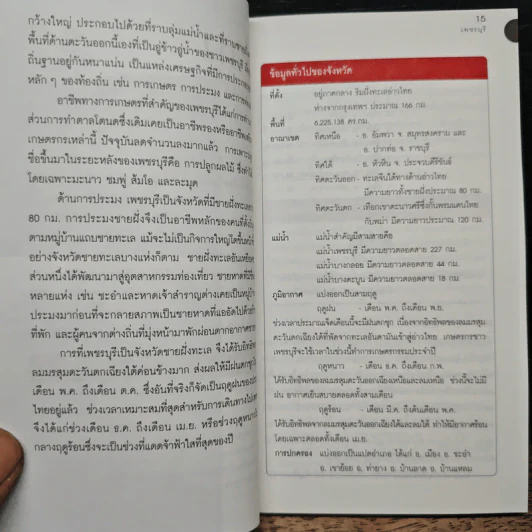 กว้างใหญ่ ประกอบไปด้วยที่ราบลุ่มแม่น้ำและที่ราบชายฝั่ง
พื้นที่ด้านตะวันออกนี้เองที่เป็นอู่ข้าวอู่น้ำของชาวเพชรบุรี
ถิ่นฐานอยู่กันหนาแน่น เป็นแหล่งเศรษฐกิจที่มีการประกอบ
หลัก ๆ ของท้องถิ่น เช่น การเกษตร การประมง และการ
อาชีพทางการเกษตรที่สำคัญของเพชรบุรีได้แก่การทำ
ส่วนการทำตาลโตนดซึ่งเดิมเคยเป็นอาชีพรองหรืออาชีพ
เกษตรกรเหล่านี้ ปัจจุบันลดจำนวนลงมากแล้ว การเพาะ
ชื่อขึ้นมาในระยะหลังของเพชรบุรีคือ การปลูกผลไม้ ซึ่ง
โดยเฉพาะมะนาว ชมพู่ ส้มโอ และละมุด
ด้านการประมง เพชรบุรีเป็นจังหวัดที่มีชายฝั่งทะเล
80 กม. การประมงชายฝั่งจึงเป็นอาชีพหลักของคนที่ตั้ง
ตามหมู่บ้านแถบชายทะเล แม้จะไม่เป็นกิจการใหญ่โต
อย่างจังหวัดชายทะเลบางแห่งก็ตาม ชายฝั่งทะเลอัน
ส่วนหนึ่งได้พัฒนามาสู่อุตสาหกรรมท่องเที่ยว ชายหาดที่
หลายแห่ง เช่น ชะอำและหาดเจ้าสำราญต่างเคยเป็นหมู่บ้าน
ประมงมาก่อนที่จะกลายสภาพเป็นชายหาดที่แออัดไปด้วย
ที่พัก และผู้คนจากต่างถิ่นที่มุ่งหน้ามาพักผ่อนตากอากาศ
การที่เพชรบุรีเป็นจังหวัดชายฝั่งทะเล จึงได้รับอิทธิพล
ลมมรสุมตะวันตกเฉียงใต้ค่อนข้างมาก ส่งผลให้มีฝนตกชุก
เดือน พ.ค. ถึงเดือน ต.ค. ซึ่งอันที่จริงก็จัดเป็นฤดูฝนของ
ไทยอยู่แล้ว ช่วงเวลาเหมาะสมที่สุดสำหรับการเดินทาง
จึงได้แก่ช่วงเดือน ธ.ค. ถึงเดือน เม.ย. หรือช่วงฤดูหนาว
กลางฤดูร้อนซึ่งจะเป็นช่วงที่แดดจ้าฟ้าใสที่สุดของปี
15
เพชรบุรี
ข้อมูลทั่วไปของจังหวัด
ที่ตั้ง อยู่ภาคกลาง ริมฝั่งทะเลอ่าวไทย
ห่างจากกรุงเทพฯ ประมาณ 166 กม.
พื้นที่ 6,225.138 ตร.กม.
อาณาเขต ทิศเหนือ - อ. อัมพวา จ. สมุทรสงคราม และ
อ. ปากท่อ จ. ราชบุรี
ทิศใต้ - อ. หัวหิน จ. ประจวบคีรีขันธ์
ทิศตะวันออก - ทะเลจีนใต้ทางด้านอ่าวไทย
มีความยาวทั้งชายฝั่งประมาณ 80 กม.
ทิศตะวันตก - เทือกเขาตะนาวศรีซึ่งกั้นพรมแดนไทย
กับพม่า มีความยาวประมาณ 120 กม.
แม่น้ำ แม่น้ำสำคัญมีสามสายคือ
แม่น้ำเพชรบุรี มีความยาวตลอดสาย 227 กม.
แม่น้ำบางกลอย มีความยาวตลอดสาย 44 กม.
แม่น้ำบางตะบูน มีความยาวตลอดสาย 18 กม.
ภูมิอากาศ แบ่งออกเป็นสามฤดู
ฤดูฝน - เดือน พ.ค. ถึงเดือน พ.ย.
ช่วงเวลาประมาณเจ็ดเดือนนี้จะมีฝนตกชุก เนื่องจากอิทธิพลของลมมรสุม
ตะวันตกเฉียงใต้ที่พัดจากทะเลอันดามันเข้าสู่อ่าวไทย เกษตรกรชาว
เพชรบุรีจะใช้เวลาในช่วงนี้ทำการเกษตรกรรมประจำปี
ฤดูหนาว - เดือน ธ.ค. ถึงเดือน ก.พ.
ได้รับอิทธิพลของลมมรสุมตะวันออกเฉียงเหนือและลมเหนือ ช่วงนี้จะไม่มี
ฝน อากาศเย็นสบายตลอดทั้งสามเดือน
ฤดูร้อน - เดือน มี.ค. ถึงต้นเดือน พ.ค.
ได้รับอิทธิพลจากลมมรสุมตะวันออกเฉียงใต้และลมใต้ ทำให้มีอากาศร้อน
โดยเฉพาะตลอดทั้งเดือน เม.ย.
การปกครอง แบ่งออกเป็นแปดอำเภอ ได้แก่ อ. เมือง อ. ชะอำ
อ. เขาย้อย อ. ท่ายาง อ. บ้านลาด อ. บ้านแหลม